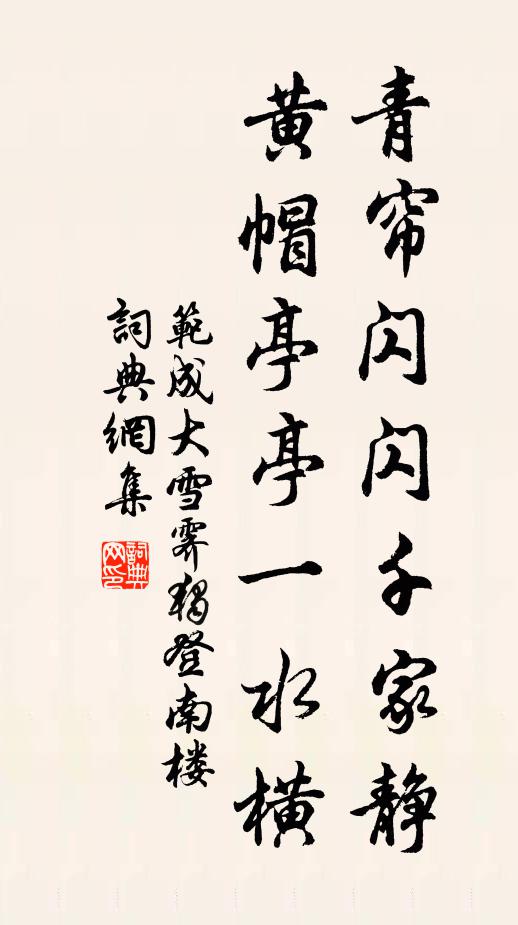 青帘闪闪千家静
黄帽亭亭一水横
範成大雪霽独登南楼
詞典網集
詞典网印